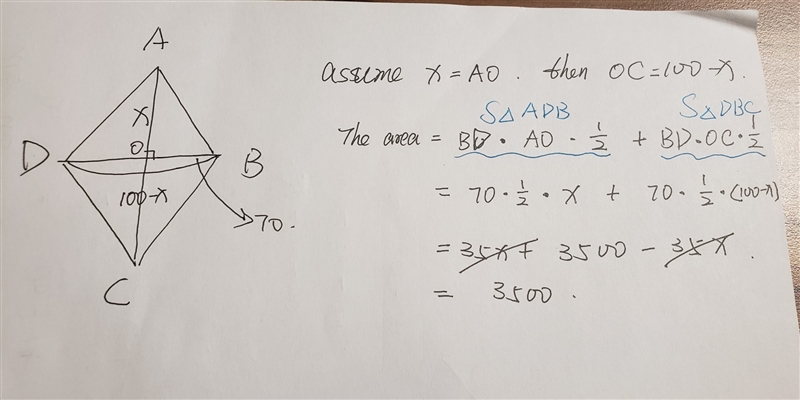 A
x
O
D
B
100-x
70.
C
assume x = AO. then OC = 100-x.
S△ADB S△DBC
The area = BD · AO · 1/2 + BD · OC · 1/2
= 70 · 1/2 · x + 70 · 1/2 · (100-x)
= 35x + 3500 - 35x.
= 3500.